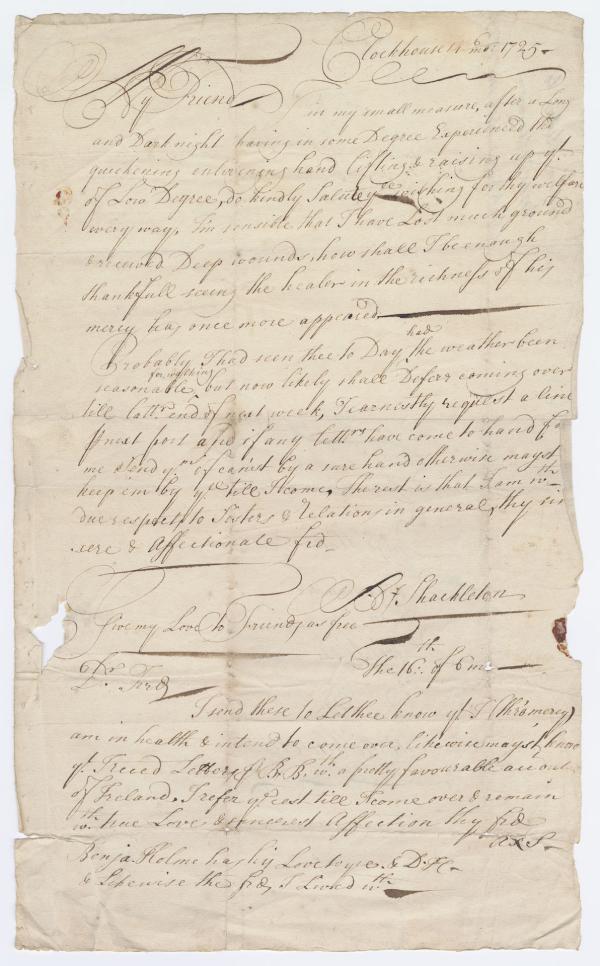 Clockhouse 4 mo: 1725
My Friend in my small measure, after a Long
and Dark night having in some Degree Experienced the
quickening enlivening hand lifting & raising up yt
of Low Degree, do kindly Salute ye wishing for thy welfare
every way, I'm sensible that I have Lost much ground
& received Deep wounds, how shall I be enough
thankfull seeing the healer in the richness of his
mercy has once more appeared
Probably I had seen thee to Day had the weather been
seasonable for walking but now likely shall Defere coming over
till lattr end of next week, I earnestly request a line
next post and if any lettrs have come to hand fo
me send ym if canst by a sure hand otherwise mayst
keep 'em by ye till I come, The rest is that I am wth
due respect to Sisters & Relations in general, thy sin
cere & Affectionate frd
Shackleton
Give my Love to Friends as free
The 16th of 6 mo
Dr Frd
I send these to Let thee know yt I (thro' mercy)
am in health & intend to come over, likewise mayst know
yt I recd Letter fr B.B. wth a pretty favourable account
of Ireland. I refer ye rest till I come over & remain
wth true Love & sincerest Affection thy frd
A S
Benja Holme has his Love to you & D. H
& Likewise the frds I Lived wth